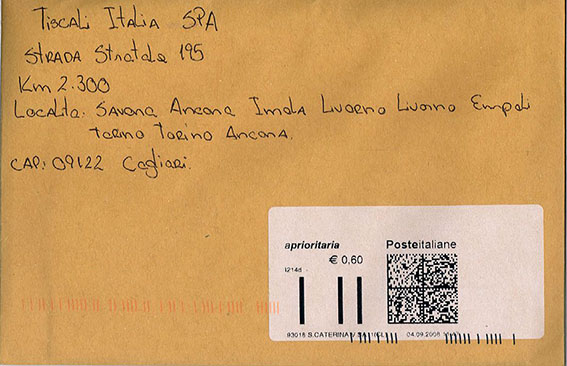 Tiscali Italia SPA
STRADA Statale 195
Km 2.300
Località: Savona Ancona Imola Livorno Livorno Empoli
Torino Torino Ancona.
CAP: 09122 Cagliari.
aprioritaria Posteitaliane
€ 0,60
93018 S.CATERINA 04.09.2008